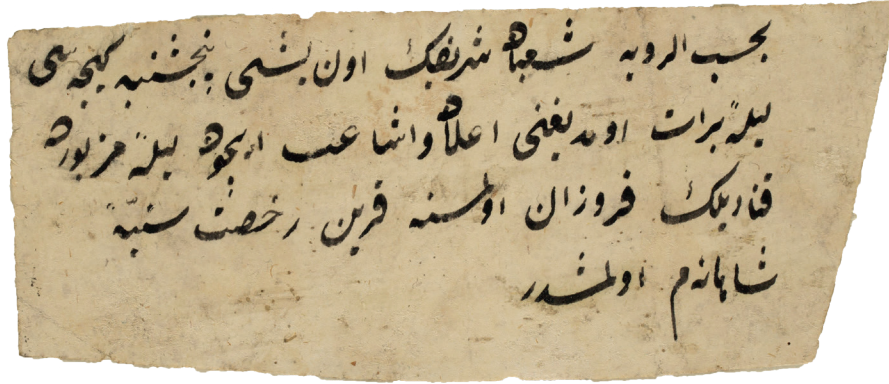 بحسب الرویه شعبان شریفك اون بشنجی پنجشنبه كیجه سی
لیلهٔ برات اولدیغنی اعلان و اشاعت ایچون لیلهٔ مزبوره
قنادیلك فروزان اولمسنه قرین رخصت سنیهٔ
شاهانه‌م اولمشدر